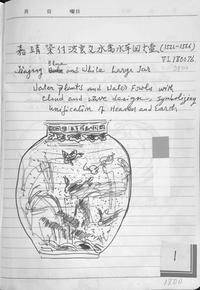 月 日 曜日
嘉靖 染付 水 大壷 (1522-1566)
Blue
Jiajing and White Large Jar
Water plants and Water Fowls with
cloud and wave design, symbolizing
unification of Heaven and Earth
1
1800